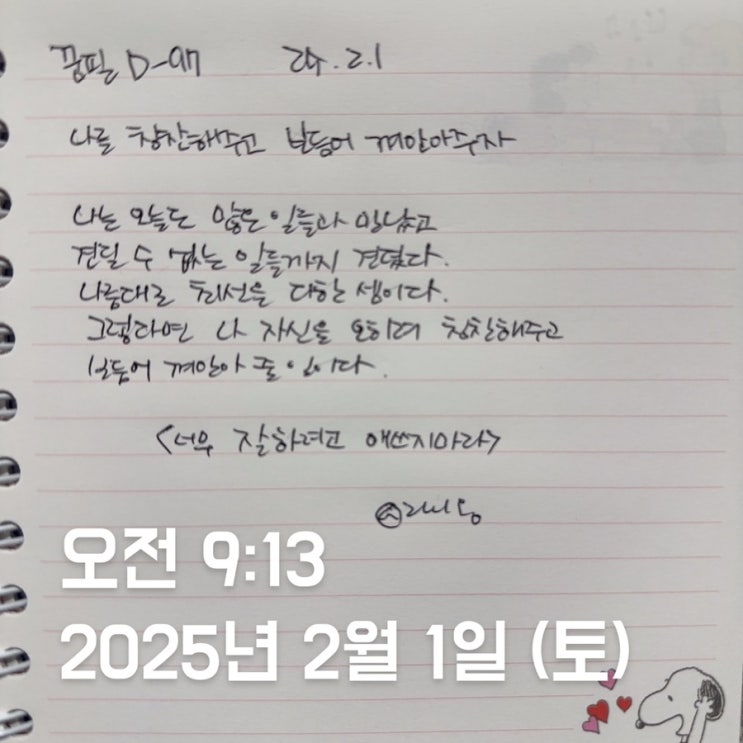 꿈필 D-97 25. 2. 1
나를 칭찬해주고 보듬어 껴안아주자
나는 오늘도 많은 일들과 만났고
견딜 수 없는 일들까지 견뎠다.
나름대로 최선을 다한 셈이다.
그렇다면 나 자신을 오히려 칭찬해주고
보듬어 껴안아 줄 일이다.
<너무 잘하려고 애쓰지마라>
오전 9:13
2025년 2월 1일 (토)